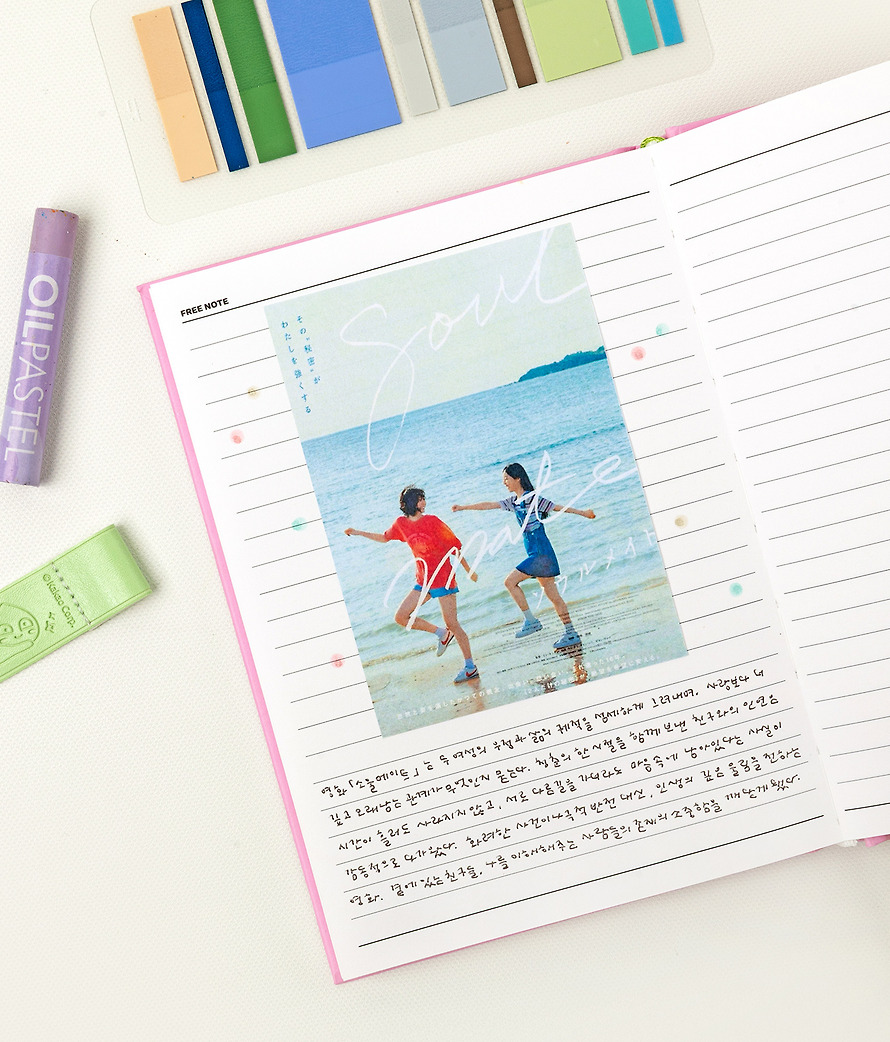 FREE NOTE
その“秘密”が
わたしを強くする
Soul
mate
ソウルメイト
영화 「소울메이트」는 두 여성의 우정과 삶의 궤적을 섬세하게 그려내며, 사랑보다 더
깊고 오래남는 관계가 무엇인지 묻는다. 청춘의 한 시절을 함께 보낸 친구와의 인연은
시간이 흘러도 사라지지 않고, 서로 다른길을 가더라도 마음속에 남아있다는 사실이
감동적으로 다가왔다. 화려한 사건이나 극적 반전 대신, 인생의 깊은 울림을 전하는
영화. 곁에 있는 친구들, 나를 이해해주는 사람들의 존재의 소중함을 깨닫게 됐다.
OIL PASTEL
©Kakao Corp.